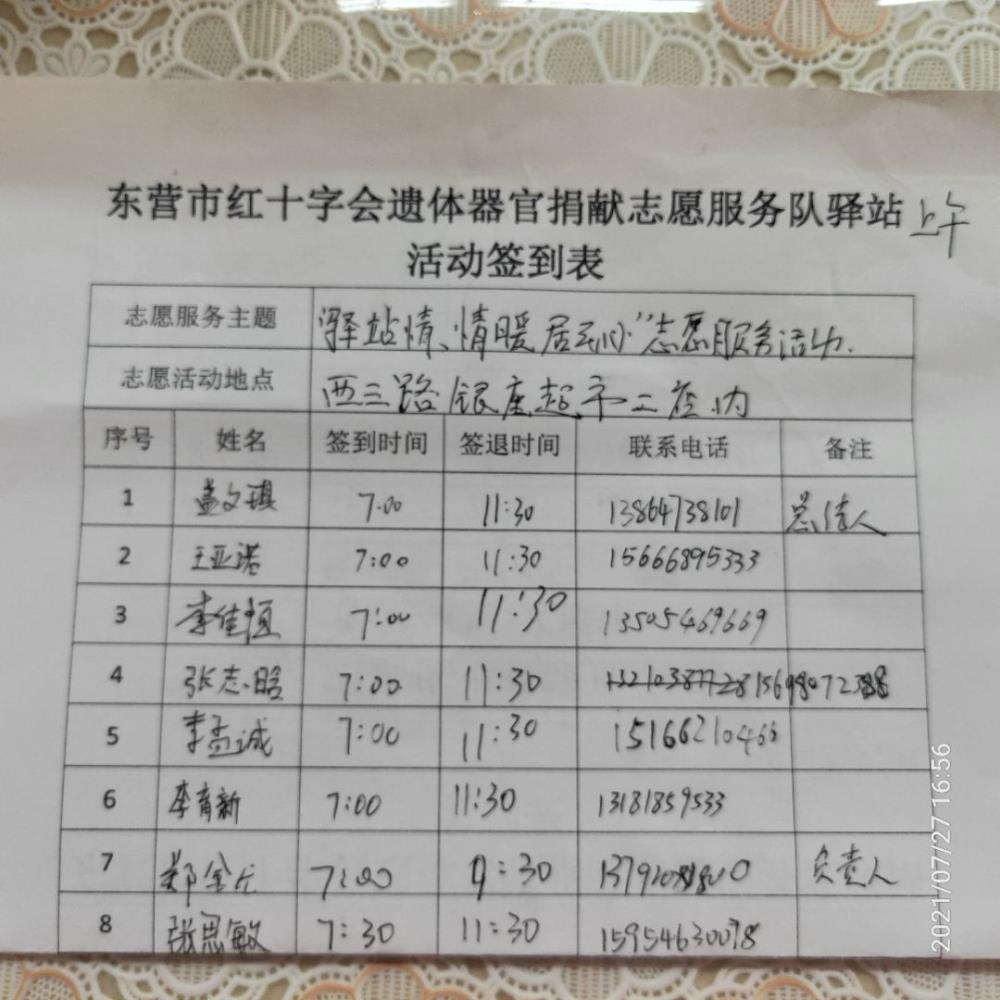 东营市红十字会遗体器官捐献志愿服务队驿站 上午
活动签到表
志愿服务主题 驿站情、情暖居民心"志愿服务活动.
志愿活动地点 西三路银座超市二店内
序号 姓名 签到时间 签退时间 联系电话 备注
1 孟文琪 7:00 11:30 13864738101
2 王亚诺 7:00 11:30 15666895333
3 李佳恒 7:00 11:30 13505469669
4 张志晗 7:00 11:30 13210387728
5 李孟诚 7:00 11:30 15166210466
6 李育新 7:00 11:30 13181859533
7 郑金 7:00 :30 负责人
8 张思敏 7:30 11:30 15954630098
2021/07/27 16:56